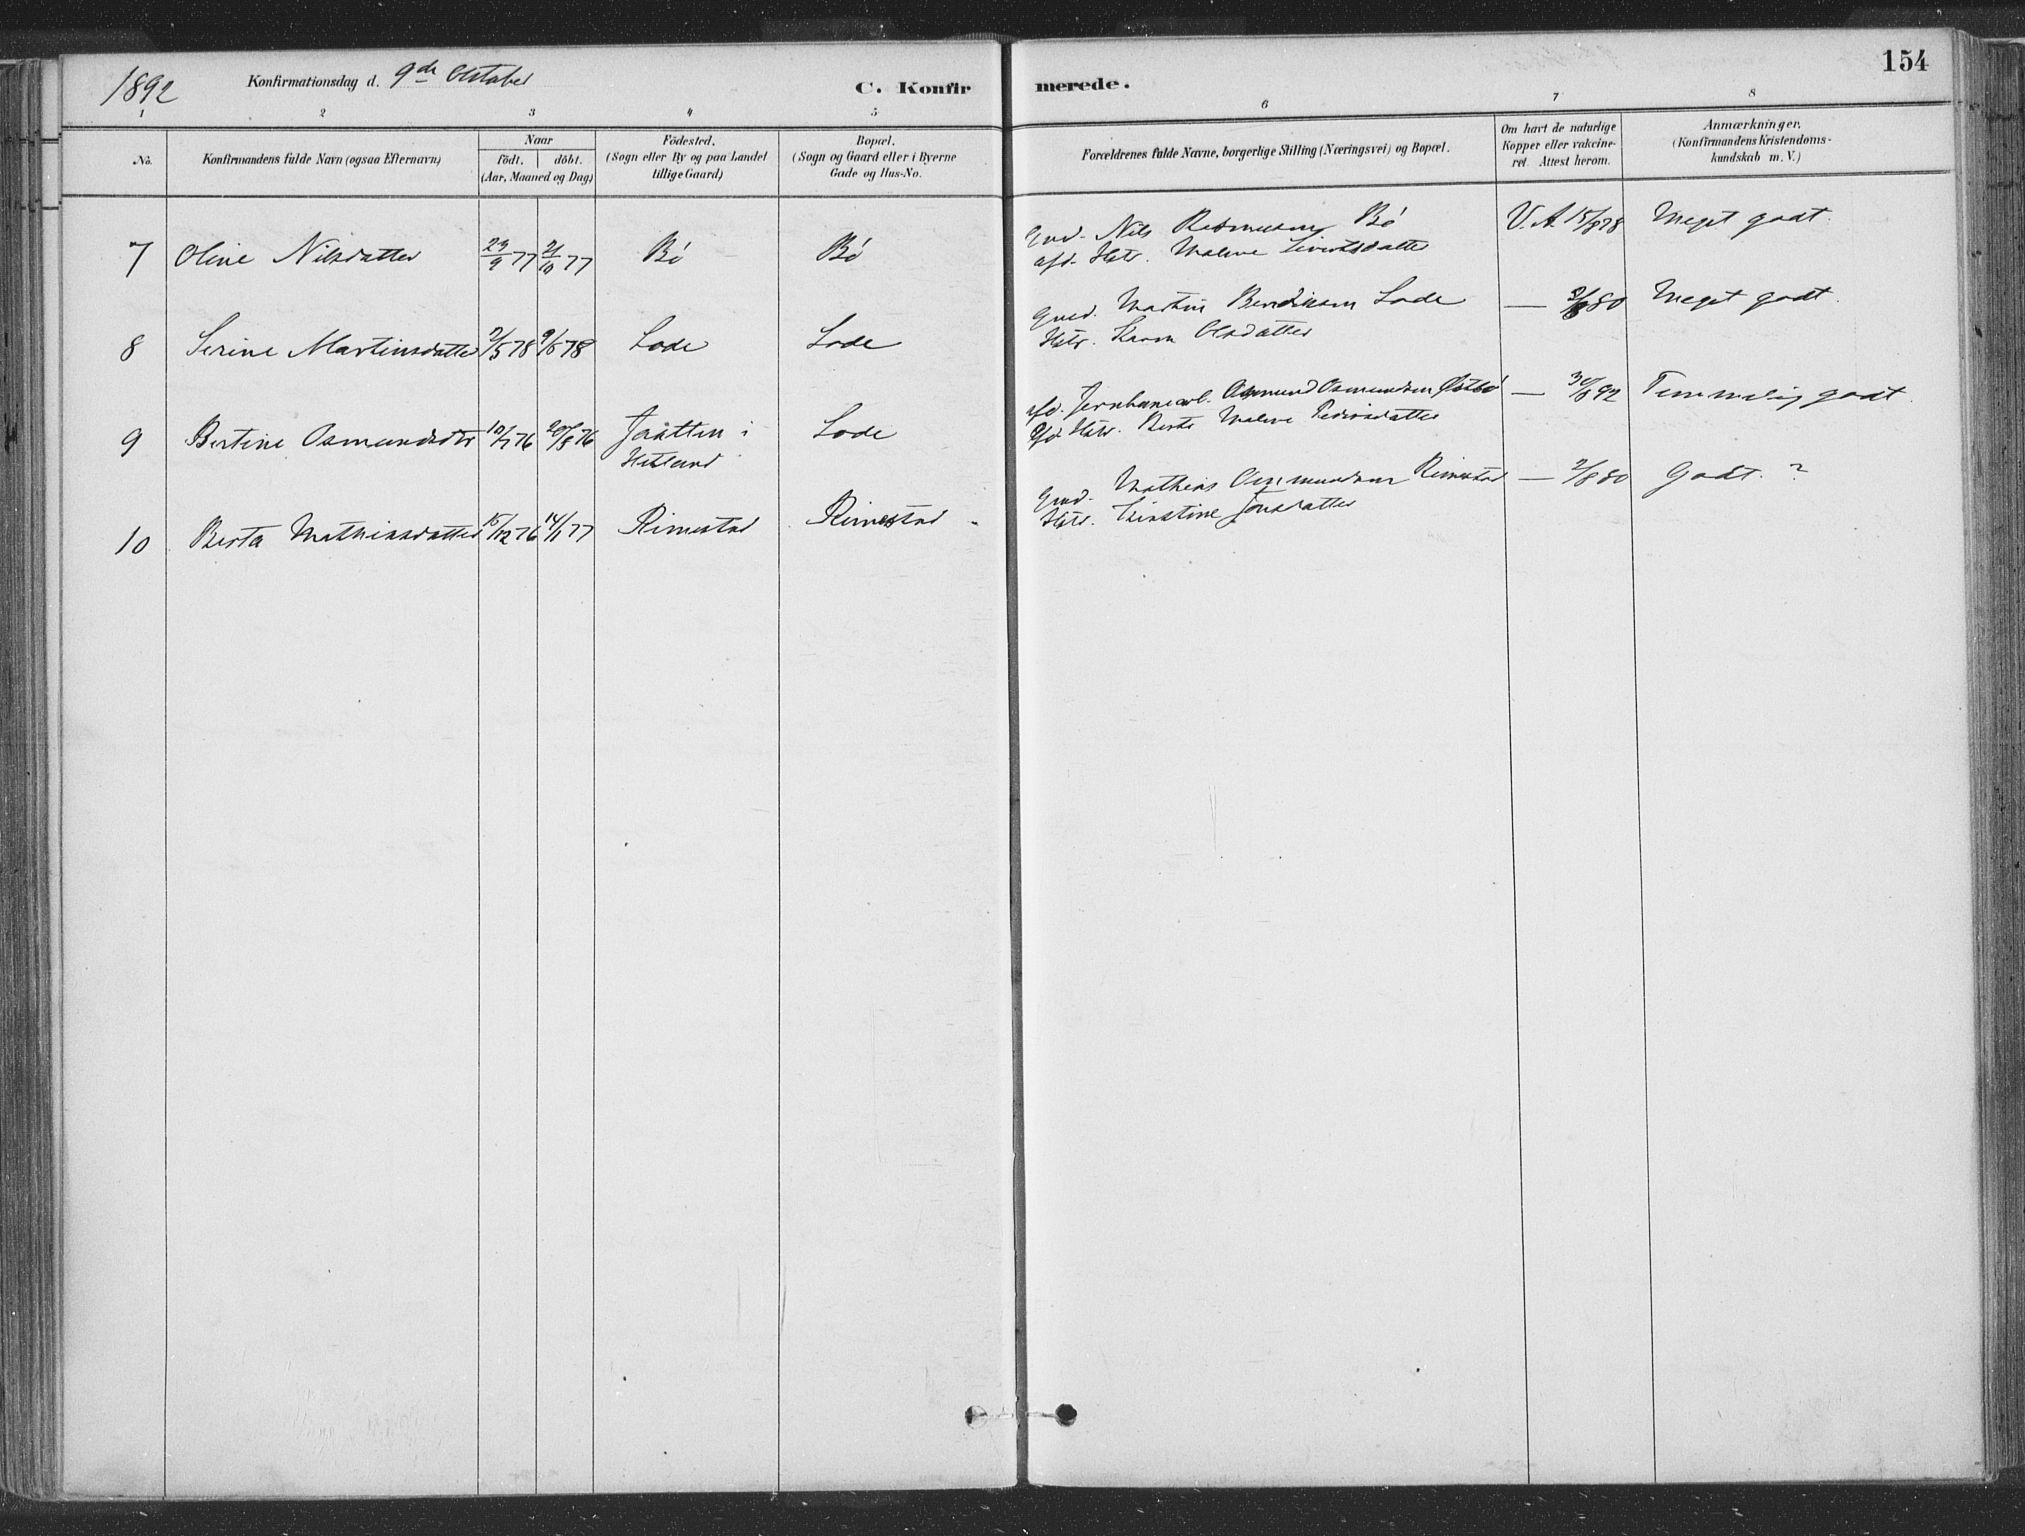 1892 Konfirmationsdag d. 9de Oktober C. Konfirmerede. 154
1 2 3 4 5 6 7 8
No.
Konfirmandens fulde Navn (ogsaa Efternavn)
Naar
födt. döbt.
(Aar, Maaned og Dag)
Födested.
(Sogn eller By og paa Landet
tillige Gaard)
Bopæl.
(Sogn og Gaard eller i Byerne
Gade og Hus-No.
Forældrenes fulde Navne, borgerlige Stilling (Næringsvei) og Bopæl.
Om havt de naturlige
Kopper eller vakcine-
ret. Attest herom.
Anmærkninger.
(Konfirmandens Kristendoms-
kundskab m. V.)
7 Oline Nilsdatter 29/9 77 21/10 77 Bö Bö
Gmd. Nils Rasmusen Bö V. A 15/8 78 Meget godt.
afd. Hstr. Malene Sivertsdatter
8 Serine Martinsdatter 2/5 78 9/6 78 Lode Lode
Gmd. Martin Bendiksen Lode — 80 Meget godt.
Hstr. Karen Olsdatter
9 Bertine Osmundsdtr 10/7 76 20/8 76 Jaatten i Lode
Hetland
afd. Jernbanearb. Osmund Osmundsen Östbö — 30/8 92 Temmelig godt.
Hstr. Berte Malene Pedersdatter
10 Berta Mathiasdatter 15/12 76 14/1 77 Rimestad Rimestad
Gmd. Mathias Osmundsen Rimestad — 2/8 80 Godt. ?
Hstr. Kirstine Jonsdatter